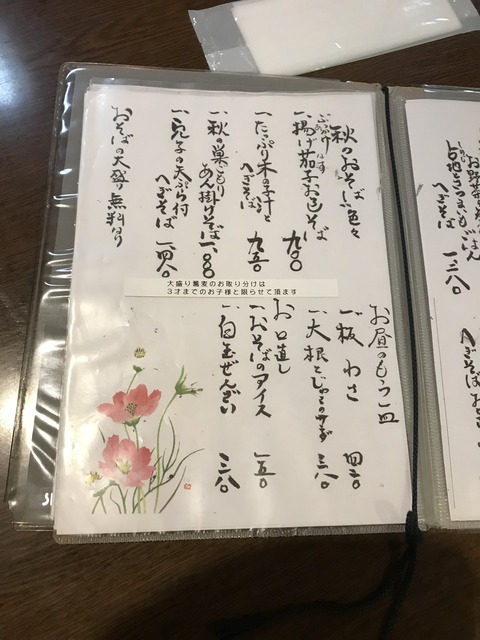 秋のおそば色々
一、揚げ茄子おろしそば 九〇〇
一、たっぷり木の子汁と
へぎそば 九五〇
一、秋の巣ごもり
あん掛けそば 一、一〇〇
天ぷら付
へぎそば 一四八〇
おそばの大盛り無料なり
大盛り蕎麦のお取り分けは
3才までのお子様と限らせて頂ます
お昼のもう一皿
一、板わさ 四三〇
一、大根とじゃこのサラダ 三八〇
お口直し
一、おそばのアイス 一五〇
一、白玉ぜんざい 三八〇
さつまいもごはん
へぎそば 一三八〇